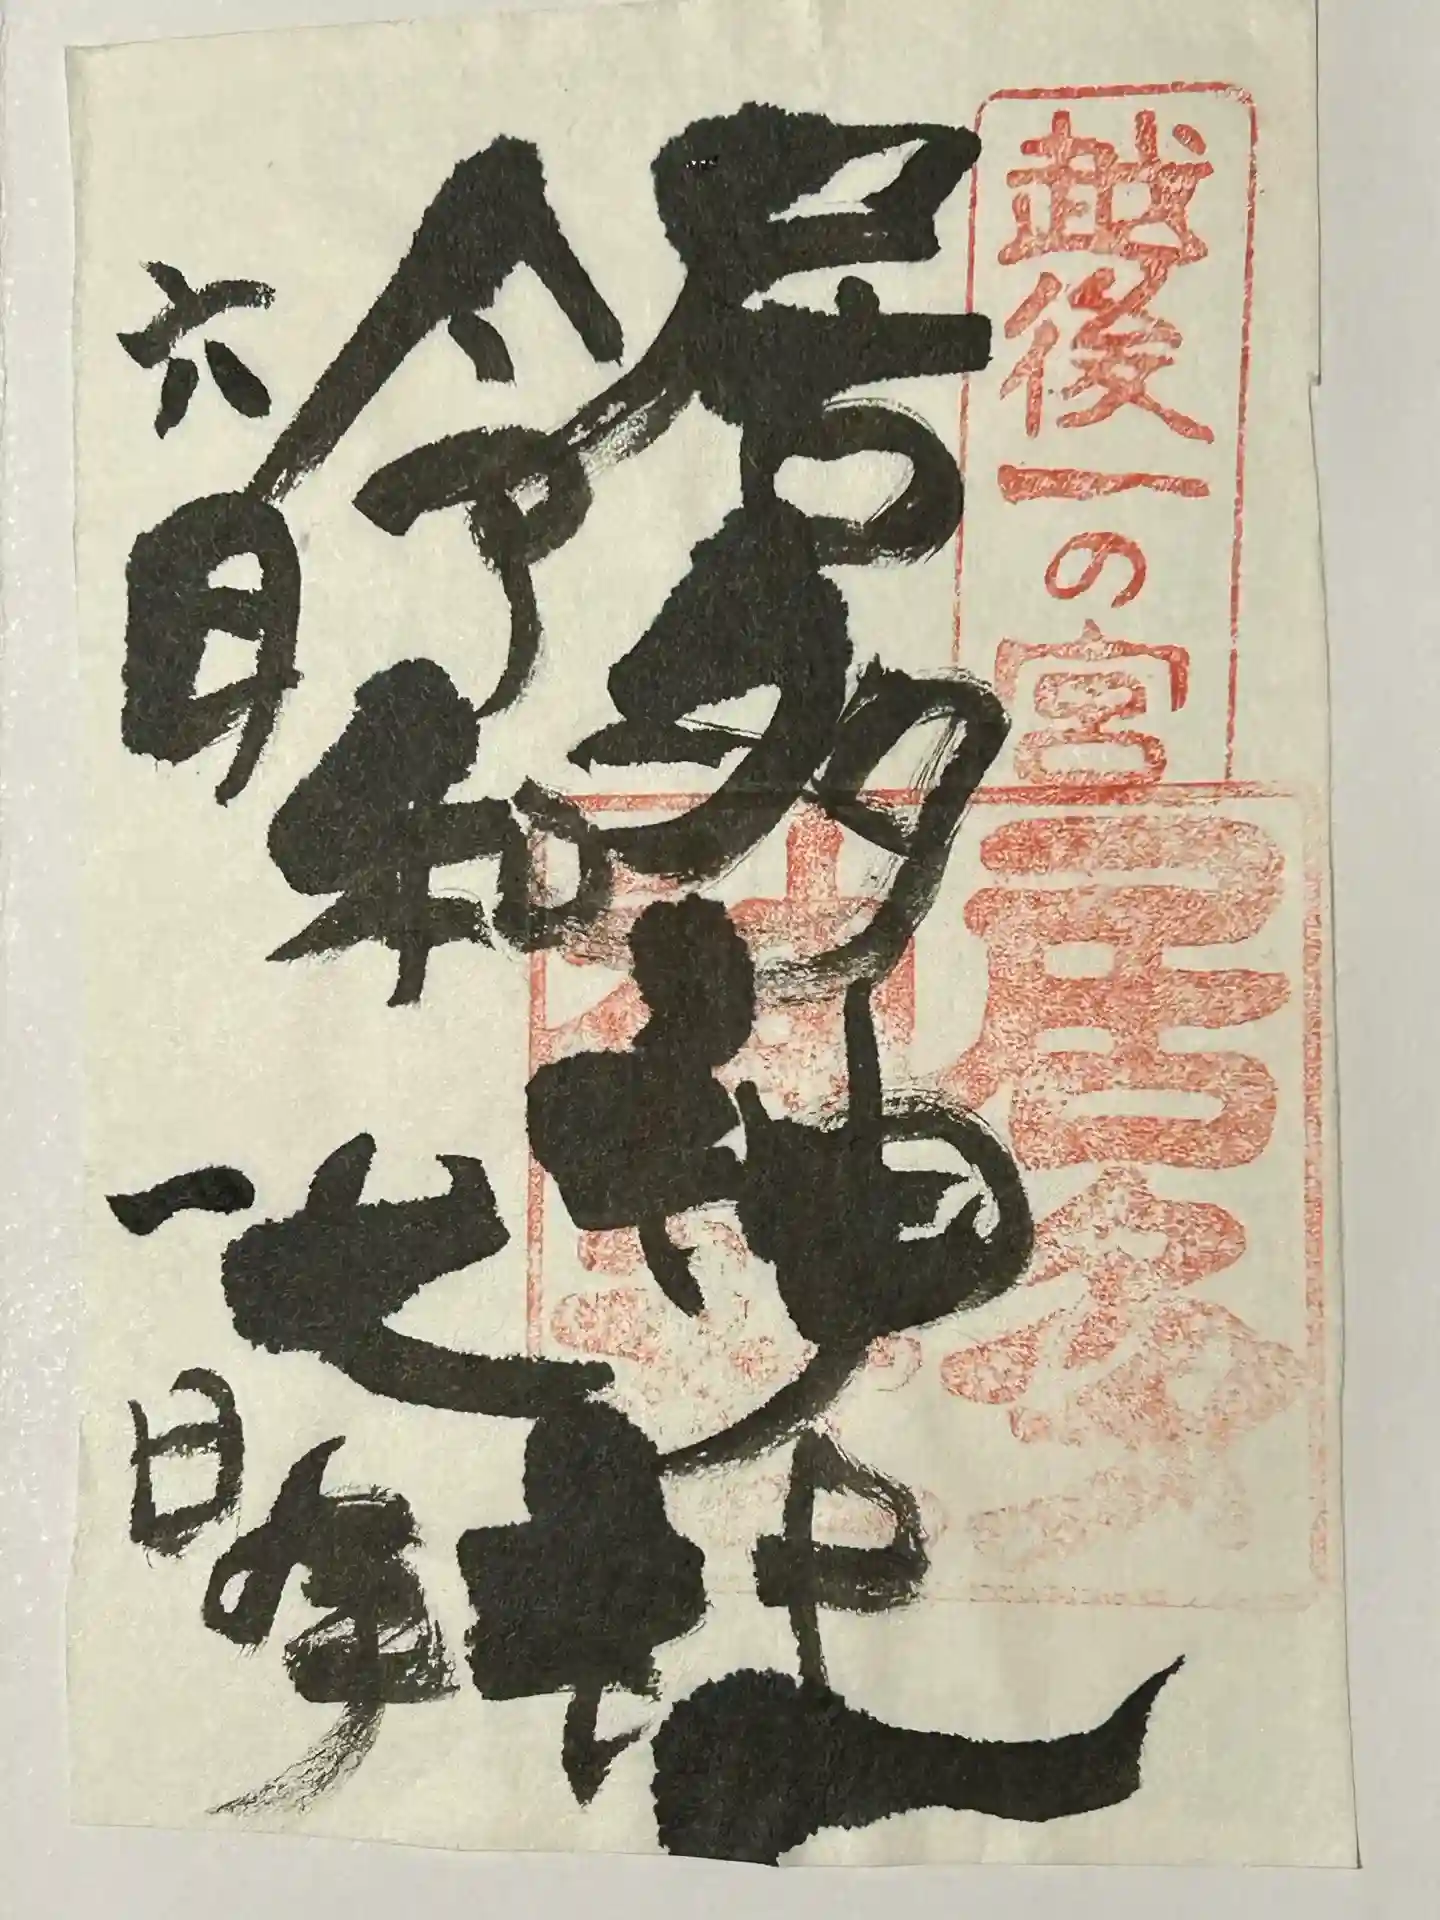 越後一の宮
居多神社
居多
令和七年
六月一日